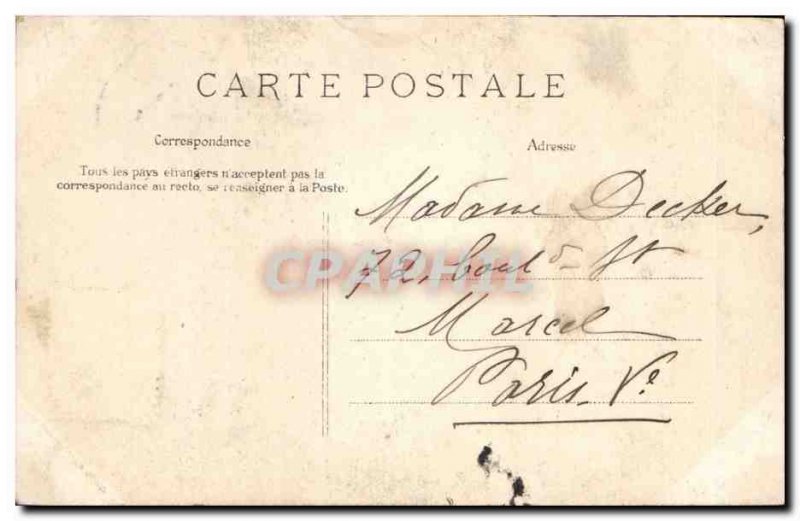 CARTE POSTALE
Correspondance
Adresse
Tous les pays étrangers n'acceptent pas la
correspondance au recto, se renseigner à la Poste.
Madame Decker,
72, boul d St
Marcel
Paris. Ve
CPAPHIL